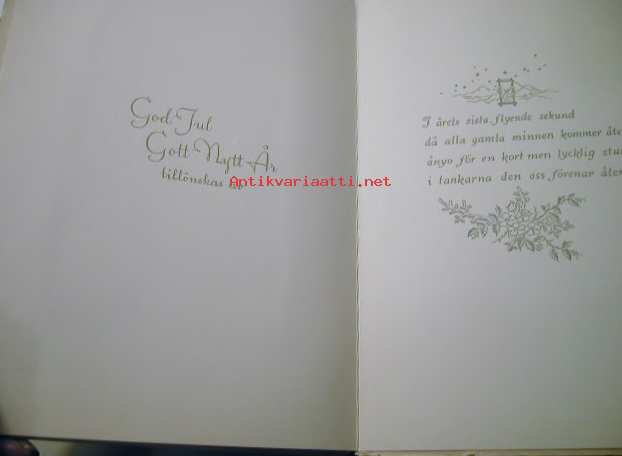 God Jul
Gott Nytt År
tillönskas
Antikvariaatti.net
I årets sista flyende sekund
då alla gamla minnen kommer åte
ånyo för en kort men lycklig stu
i tankarna den oss förenar åter